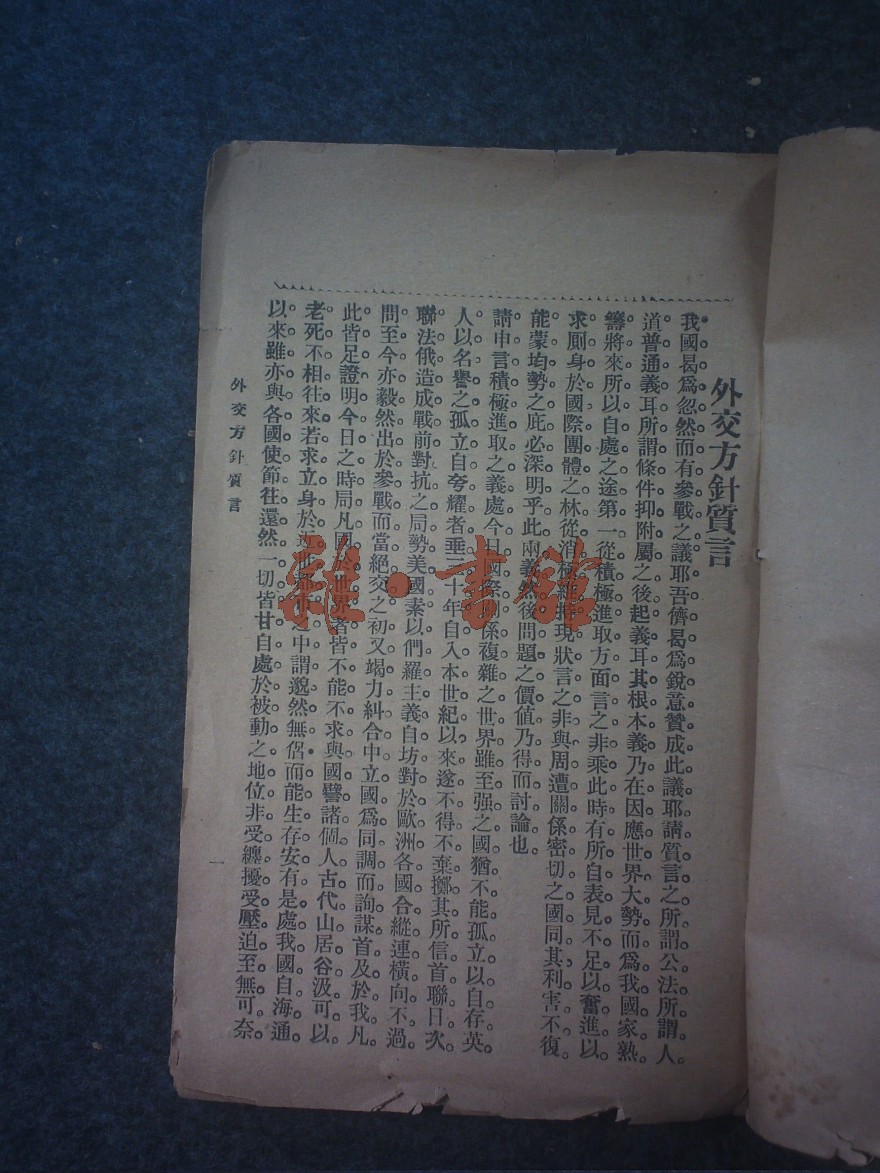 外交方針質言
我國曷爲忽然而有參戰之議耶吾儕曷爲銳意贊成此議耶請質言之所謂公法所謂人
道普通義耳所謂條件抑附屬之後起義耳其根本義乃在因應世界大勢而爲我國家熟
籌將來所以自處之途第一從積極進取方面言之非乘此時有所自表見不足以奮進以
求厠身於國際團體之林從消極維持現狀言之非與周遭關係密切之國同其利害不復
能蒙均勢之庇必深明乎此兩義然後問題之價値乃得而討論也
請申言積極進取之義處今日國際關係複雜之世界雖至强之國猶不能孤立以自存英
人以名譽之孤立自夸耀者垂三十年自入本世紀以來遂不得不棄擲其所信首聯日次
聯法俄造成戰前對抗之局勢美國素以們羅主義自坊對於歐洲各國合縱連橫向不過
問至今亦毅然出於參戰而當絕交之初又竭力糾合中立國爲同調而詢謀首及於我凡
此皆足證明今日之時局凡國於世界者皆不能不求與國譬諸個人古代山居谷汲可以
老死不相往來若求立身於近世都市之中謂邈然無侶而能生存安有是處我國自海通
以來雖亦與各國使節往還然一切皆甘自處於被動之地位非受纏擾受壓迫至無可奈
外交方針質言
一
雜·書館